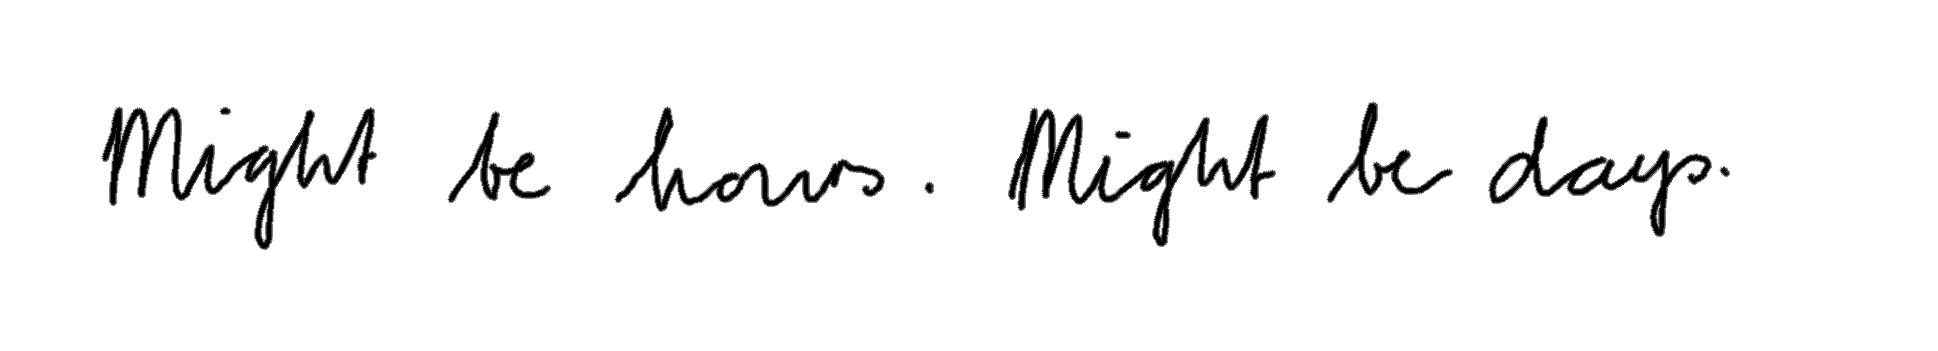 Might be hours. Might be days.